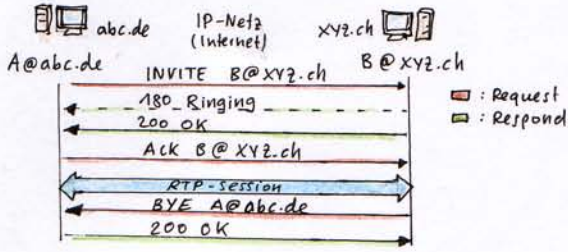 abc.de
IP-Netz
(Internet)
xyz.ch
A@abc.de
B@xyz.ch
INVITE B@xyz.ch
180_Ringing
200 OK
ACK B@xyz.ch
RTP-Session
BYE A@abc.de
200 OK
: Request
: Respond